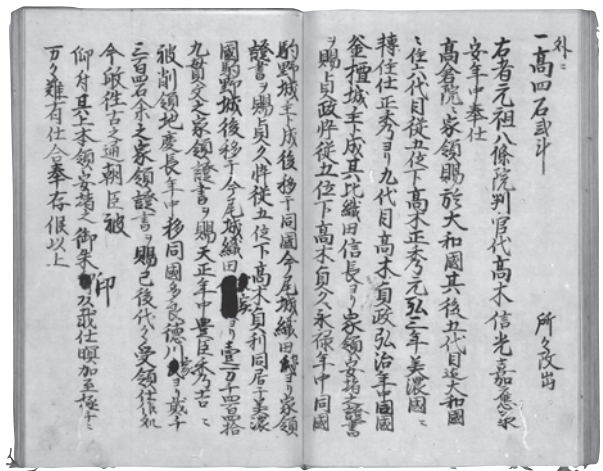 外ニ
一高四石弐斗
所々改出
右者元祖八條院判官代高木信光嘉應承
安年中奉仕
高倉院ニ家領賜於大和國其後五代目迄大和國
ニ住六代目従五位下高木正秀元弘三年美濃國ニ
轉住仕正秀ヨリ九代目高木貞政弘治年中同國
釜檀城主ト成其比織田信長ヨリ家領安堵之證書
ヲ賜貞政忰従五位下高木貞久永禄年中同國
駒野城主ト成後移于同國今尾城織田ヨリ家領
證書ヲ賜貞久忰従五位下高木貞利同居于美濃
國駒野城後移于今尾城織田ヨリ壹万千四百拾
九貫文之家領證書ヲ賜天正年中豊臣秀吉ニ
被削領地慶長年中移同國多良徳川ヨリ弐千
三百四石余之家領證書ヲ賜已後代々受領仕作礼
今般往古之通朝臣被
仰付其上本領安堵之御朱印頂戴仕瞑加至極ニ
万々難有仕合奉存候以上